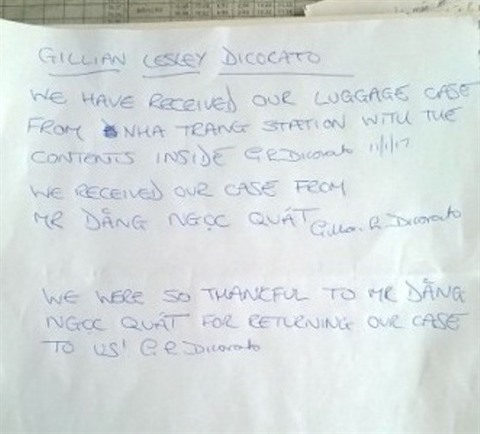 GILLIAN LESLEY DICORATO
WE HAVE RECEIVED OUR LUGGAGE CASE
FROM NHA TRANG STATION WITH THE
CONTENTS INSIDE G R Dicorato 11/1/17
WE RECEIVED OUR CASE FROM
MR DẰNG NGỌC QUÁT Gillian R. Dicorato
WE WERE SO THANKFUL TO MR DẰNG
NGOC QUÁT FOR RETURNING OUR CASE
TO US! G R Dicorato